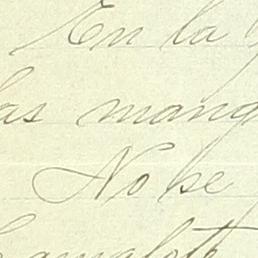 En la
las mang
No se